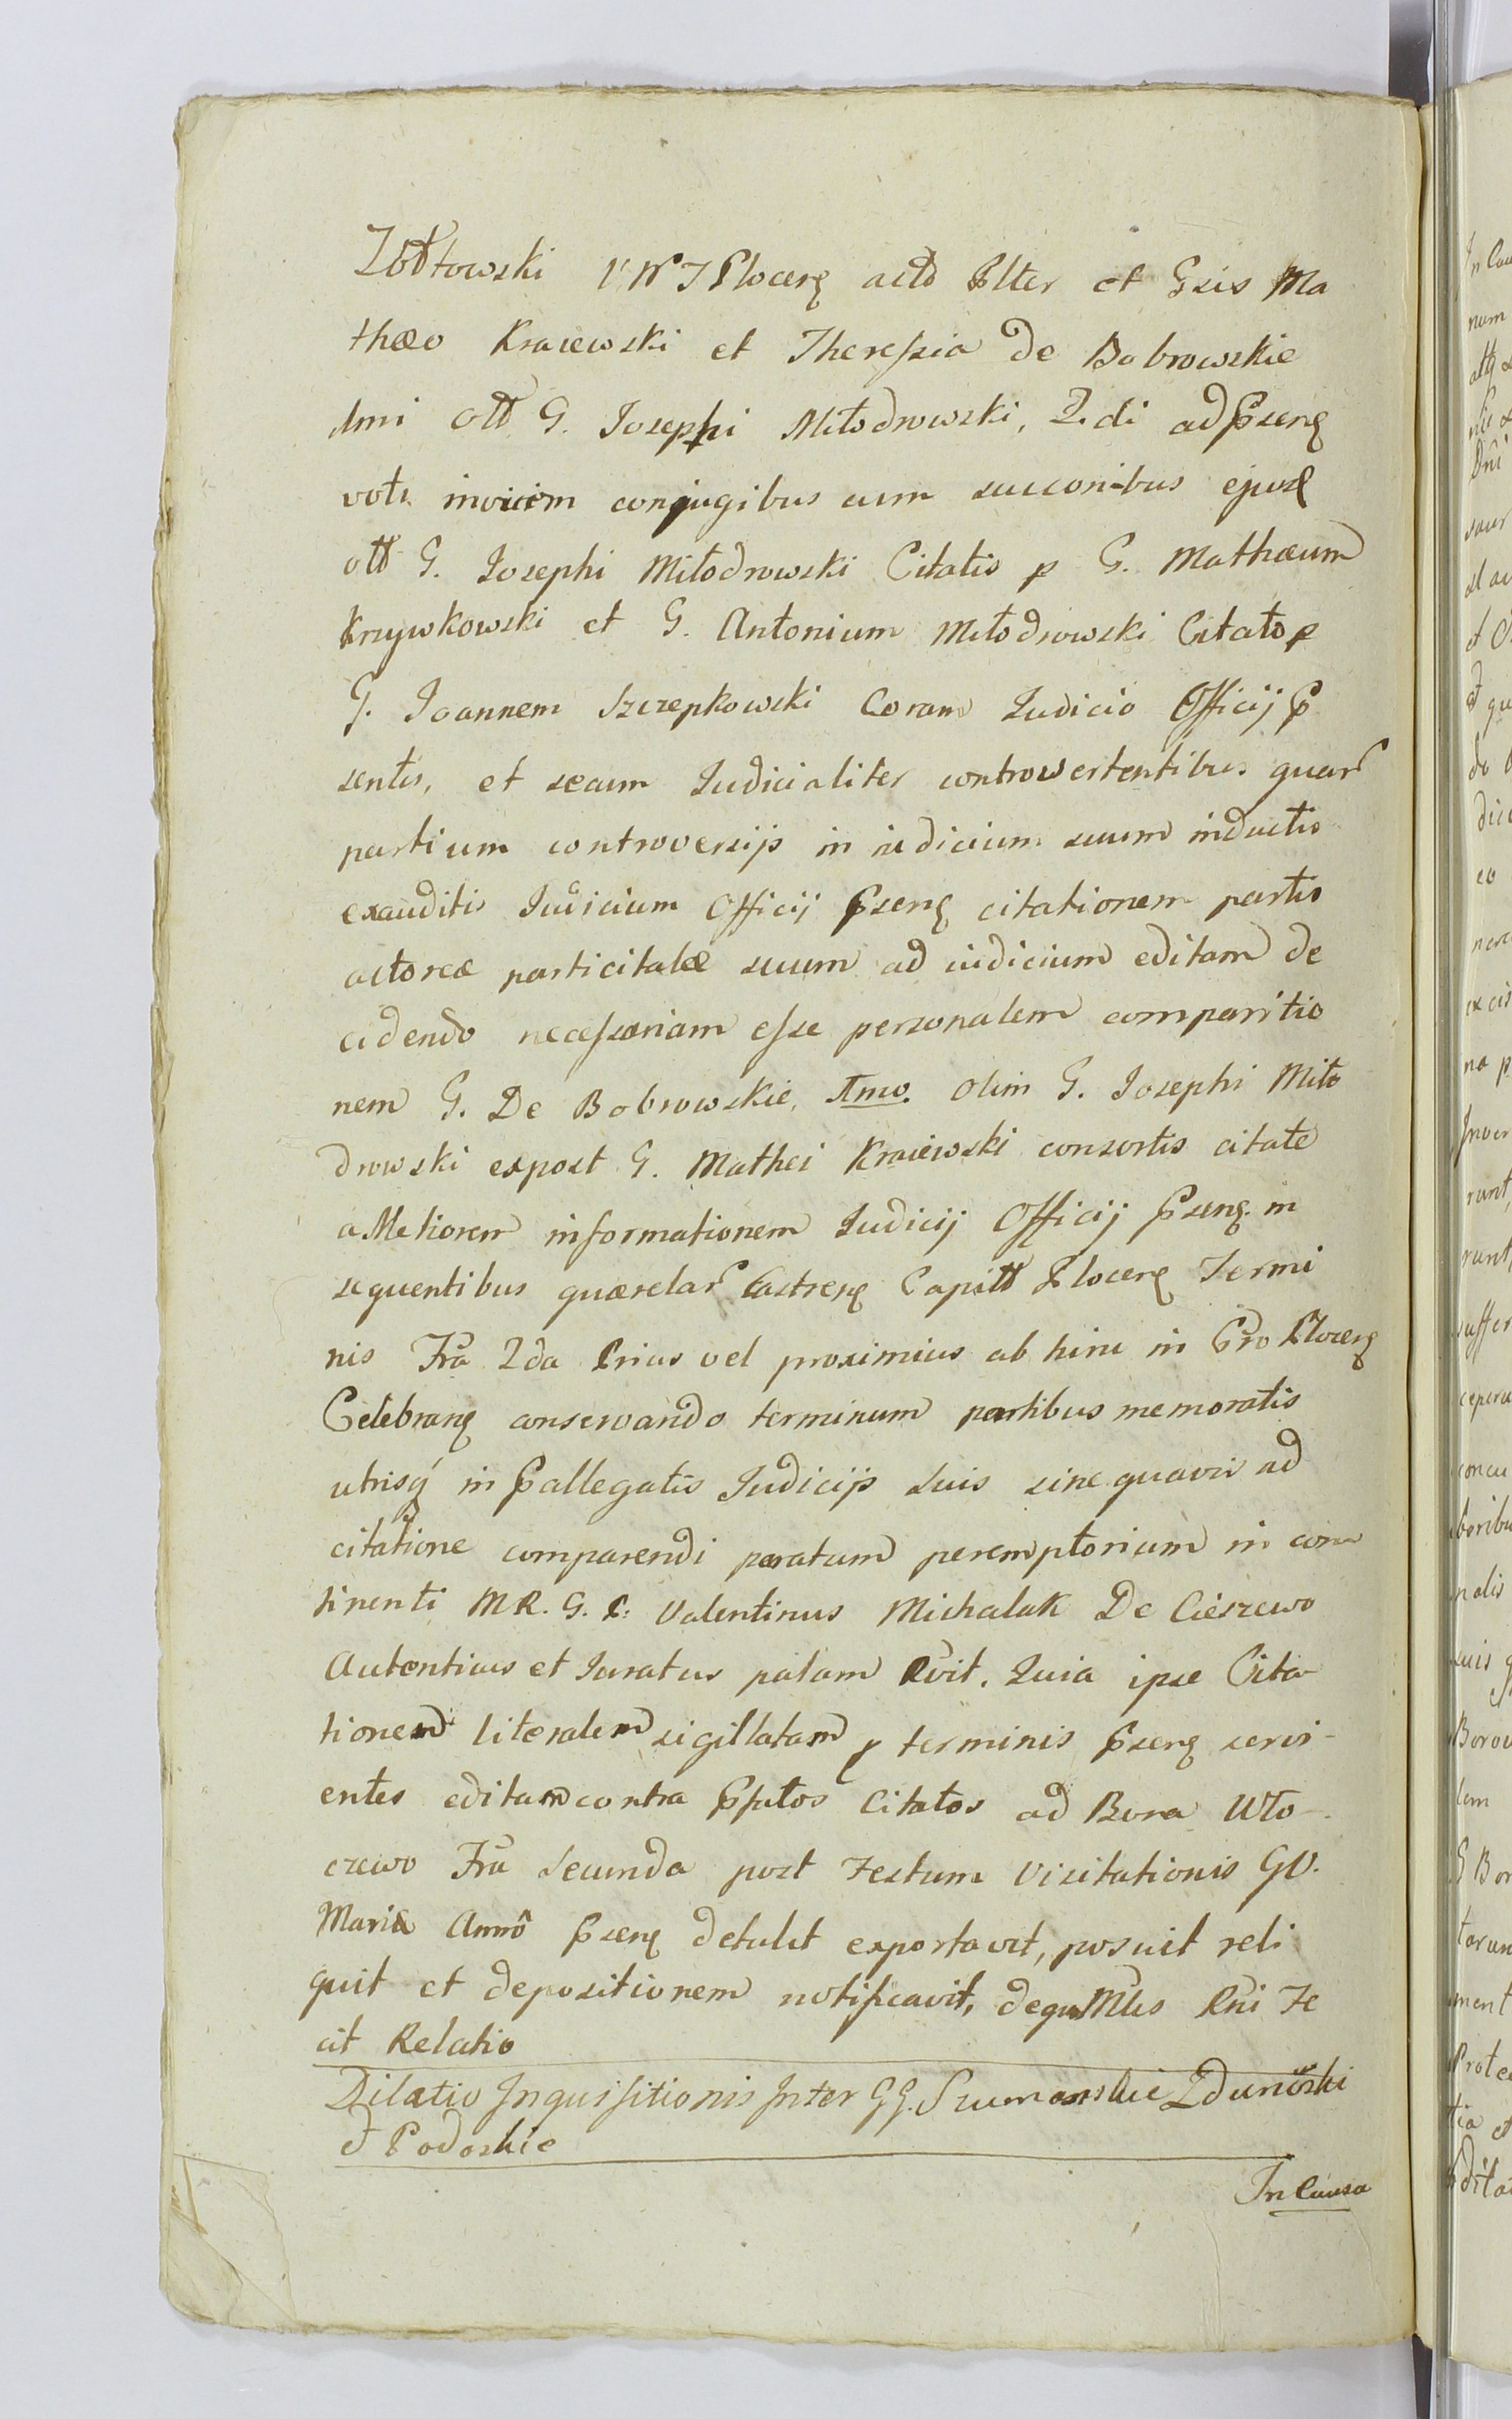 Zołtowski V N T Plocen actō Plter et Gsis Ma
thæo Kraiewski et Theressia de Bobrowskie
1mi ott G. Josephi Miłodrowski, 2.di ad Psens
voti invicem conjugibus cum succoribus ejusd
ott G. Josephi Miłodrowski Citatis p G. Mathæum
Krzywkowski et G. Antonium Miłodrowski Citato p
G. Joannem Szczepkowski Coram Judicio Officij P
sentis, et secum Judicialiter controwertentibus quar
partium controversijs in iudicium suum inductis
exauditis Judicium Officij Psens citationem partis
actoreæ parti citatæ suum ad iudicium editam de
cidendo necessariam esse personalem comparitio
nem G. De Bobrowskie, 1mo. olim G. Josephi Miło
drowski expost G. Mathei Kraiewski consortis citate
a Meliorem informationem Judicij Officij Psens in
sequentibus quærelar Castrens Capitt Plocens Termi
nis Fra 2da Prius vel proximius ab hinc in Cro Plocens
Celebrans conservando terminum partibus memoratis
utrisq in Pallegatis Judicijs suis sine quavis ad
citatione comparendi peratum peremptorium in con
tinenti MR. G. C: Valentinus Michalak De Cieszewo
Autentius et Juratus palam Rvit. Quia ipse Cita-
tionem literalem sigillatam p terminis Psens servi-
entes editam contra Pfatos Citatos ad Bona Wło-
czewo Fra Secunda post Festum Visitationis GV.
Mariæ Annô Psens detulit exportavit, posuit reli
quit et depositionem notificavit, de qus Mlis Pni Fe
cit Relatio
Dilatio Inquisitionis Inter GG. Szumanskie Zdunowski
et Podoskie
In Causa